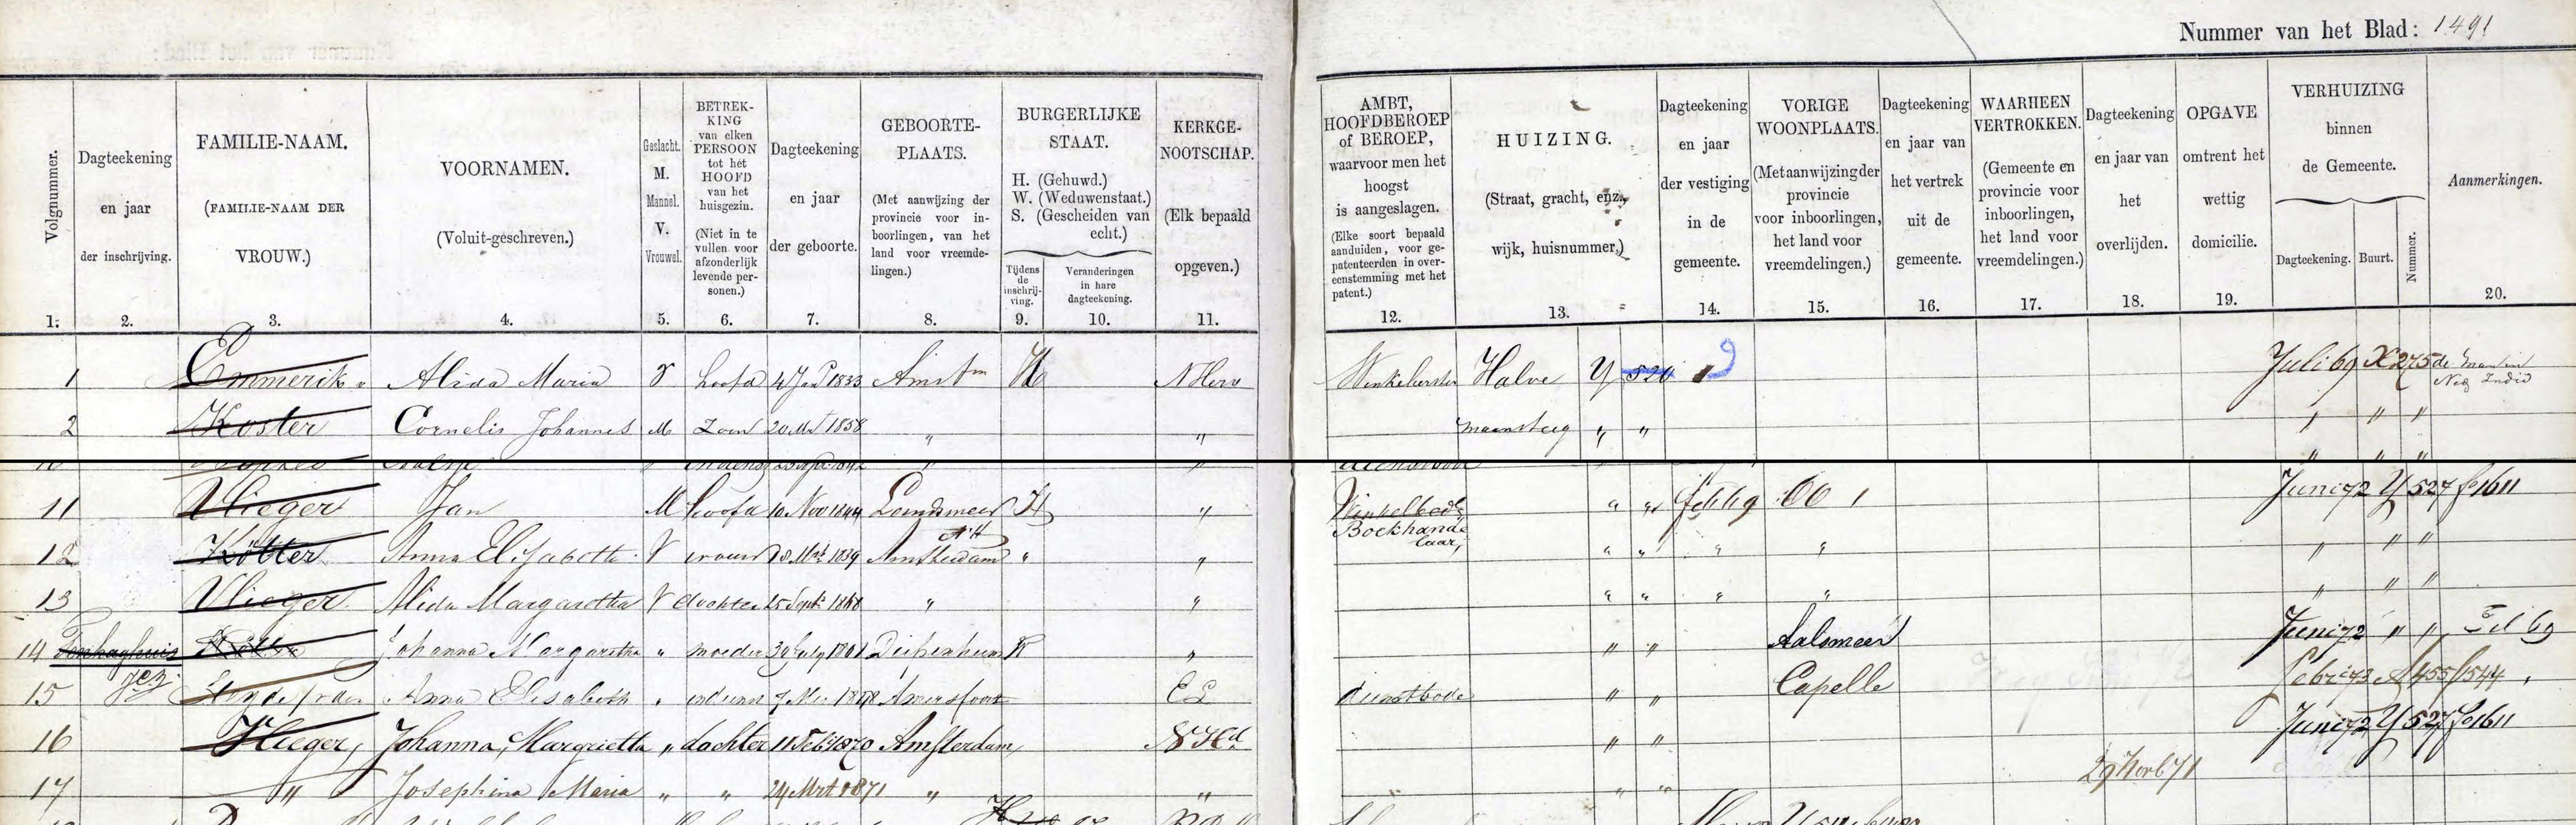 Nummer van het Blad: 1491
Volgnummer.
1.
Dagteekening
en jaar
der inschrijving.
2.
FAMILIE-NAAM.
(FAMILIE-NAAM DER
VROUW.)
3.
VOORNAMEN.
(Voluit-geschreven.)
4.
Geslacht.
M.
Mannel.
V.
Vrouwel.
5.
BETREK-
KING
van elken
PERSOON
tot het
HOOFD
van het
huisgezin.
(Niet in te
vullen voor
afzonderlijk
levende per-
sonen.)
6.
Dagteekening
en jaar
der geboorte.
7.
GEBOORTE-
PLAATS.
(Met aanwijzing der
provincie voor in-
boorlingen, van het
land voor vreemde-
lingen.)
8.
BURGERLIJKE
STAAT.
H. (Gehuwd.)
W. (Weduwenstaat.)
S. (Gescheiden van
echt.)
Tijdens
de
inschrij-
ving.
9.
Veranderingen
in hare
dagteekening.
10.
KERKGE-
NOOTSCHAP.
(Elk bepaald
opgeven.)
11.
AMBT,
HOOFDBEROEP
of BEROEP,
waarvoor men het
hoogst
is aangeslagen.
(Elke soort bepaald
aanduiden, voor ge-
patenteerden in over-
eenstemming met het
patent.)
12.
HUIZING.
(Straat, gracht, enz.,
wijk, huisnummer,)
13.
Dagteekening
en jaar
der vestiging
in de
gemeente.
14.
VORIGE
WOONPLAATS.
(Met aanwijzing der
provincie
voor inboorlingen,
het land voor
vreemdelingen.)
15.
Dagteekening
en jaar van
het vertrek
uit de
gemeente.
16.
WAARHEEN
VERTROKKEN.
(Gemeente en
provincie voor
inboorlingen,
het land voor
vreemdelingen.)
17.
Dagteekening
en jaar van
het
overlijden.
18.
OPGAVE
omtrent het
wettig
domicilie.
19.
VERHUIZING
binnen
de Gemeente.
Dagteekening. Buurt. Nummer.
Aanmerkingen.
20.
1 Emmerik v Alida Maria V hoofd 4 Jan 1833 Amstm H NHerv Winkelierster Halve Y 520 Juli 69 X 275 de man in
Ned Indie
2 Koster Cornelis Johannes M Zoon 20 Mt 1858 " " maansteeg " " " " "
11 Vlieger Jan M hoofd 10 Nov 1844 Landsmeer H " Winkelbed " " feb 69 OO 1 Juni 72 Y 527 fo 1611
Boekhande
laar,
12 Kötter Anna Elisabeth V vrouw Mrt 1839 Amsterdam NH " " " " " " " " "
13 Vlieger Alida Margaretha V dochter 25 Sept 1868 " " " " " " " " "
14 Kötter Johanna Margaretha " moeder 30 July 1801 Diepenheim " " " Aalsmeer Juni 72 " "
15 Anna Elisabeth " Amersfoort EL dienstbode " " Capelle Febr 73 455 f 544
16 Vlieger, Johanna, Margrietta " dochter 11 Feb 1870 Amsterdam, NHd " " Juni 72 Y 527 fo 1611
17 " Josephina Maria " " 24 Mrt 1871 " " " " 29 Novb 71